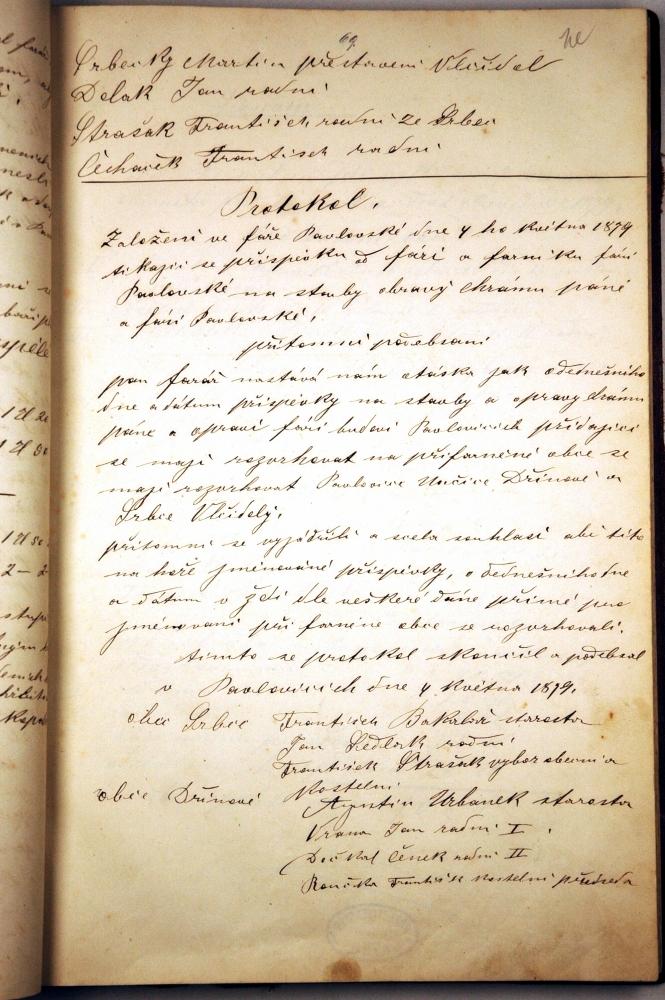 69.
Srbecky Martin přestaveni Vlčidol
Dolak Jan radni
Strašak František radni ze Srbec
Čechaček František radni
Protokol.
Založeni ve fáře Pavlovské dne 4 ho května 1879
tikajici se příspěvku od fáří a farniku fáři
Pavlovské na stavby opravy chrámu páně
a fáři Pavlovské,
přitomni podebsani
pan farář nastává nám otáska jak odednešniho
dne a dátum příspěvky na stavby a opravy chrámu
páne a opravi fári budovi Pavlovicich přidajici
se maji rozvrhovat na přifarnéné obce se
maji rozvrhovat Pavlovice Unčice Dřinové a
Srbce Vlčidoly.
přitomni se vyjádřili a scela souhlasi abi tito
na hoře jménované příspěvky, odednešniho dne
a dátum v ždi dle veškeré dáne přimé
jménovani při farnéne obce se rozvrhovali.
timto se protokol skončil a podebsal
v Pavlovicich dne 4 května 1879.
obec Srbce František Bakalář starosta
Jan Sedlak radni
František Strašak vybor obecni a
kostelni
obce Dřinové Agustin Urbanek starosta
Vrana Jan radni I.
Dočkal Čenek radni II
Konička František kostelni předseda